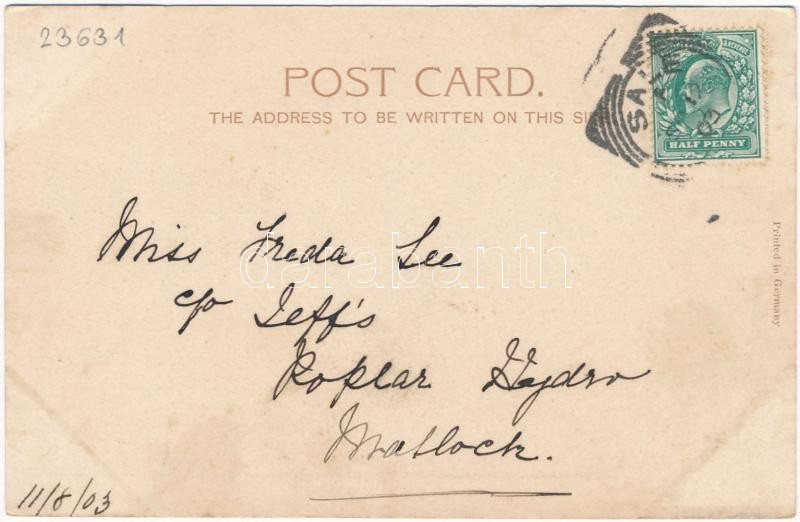 23631
POST CARD.
THE ADDRESS TO BE WRITTEN ON THIS SI
SALE
03
HALF PENNY
Miss Freda Lee
c/o Jeff's
Poplar Hydro
Matlock.
11/8/03
Printed in Germany
darabanth